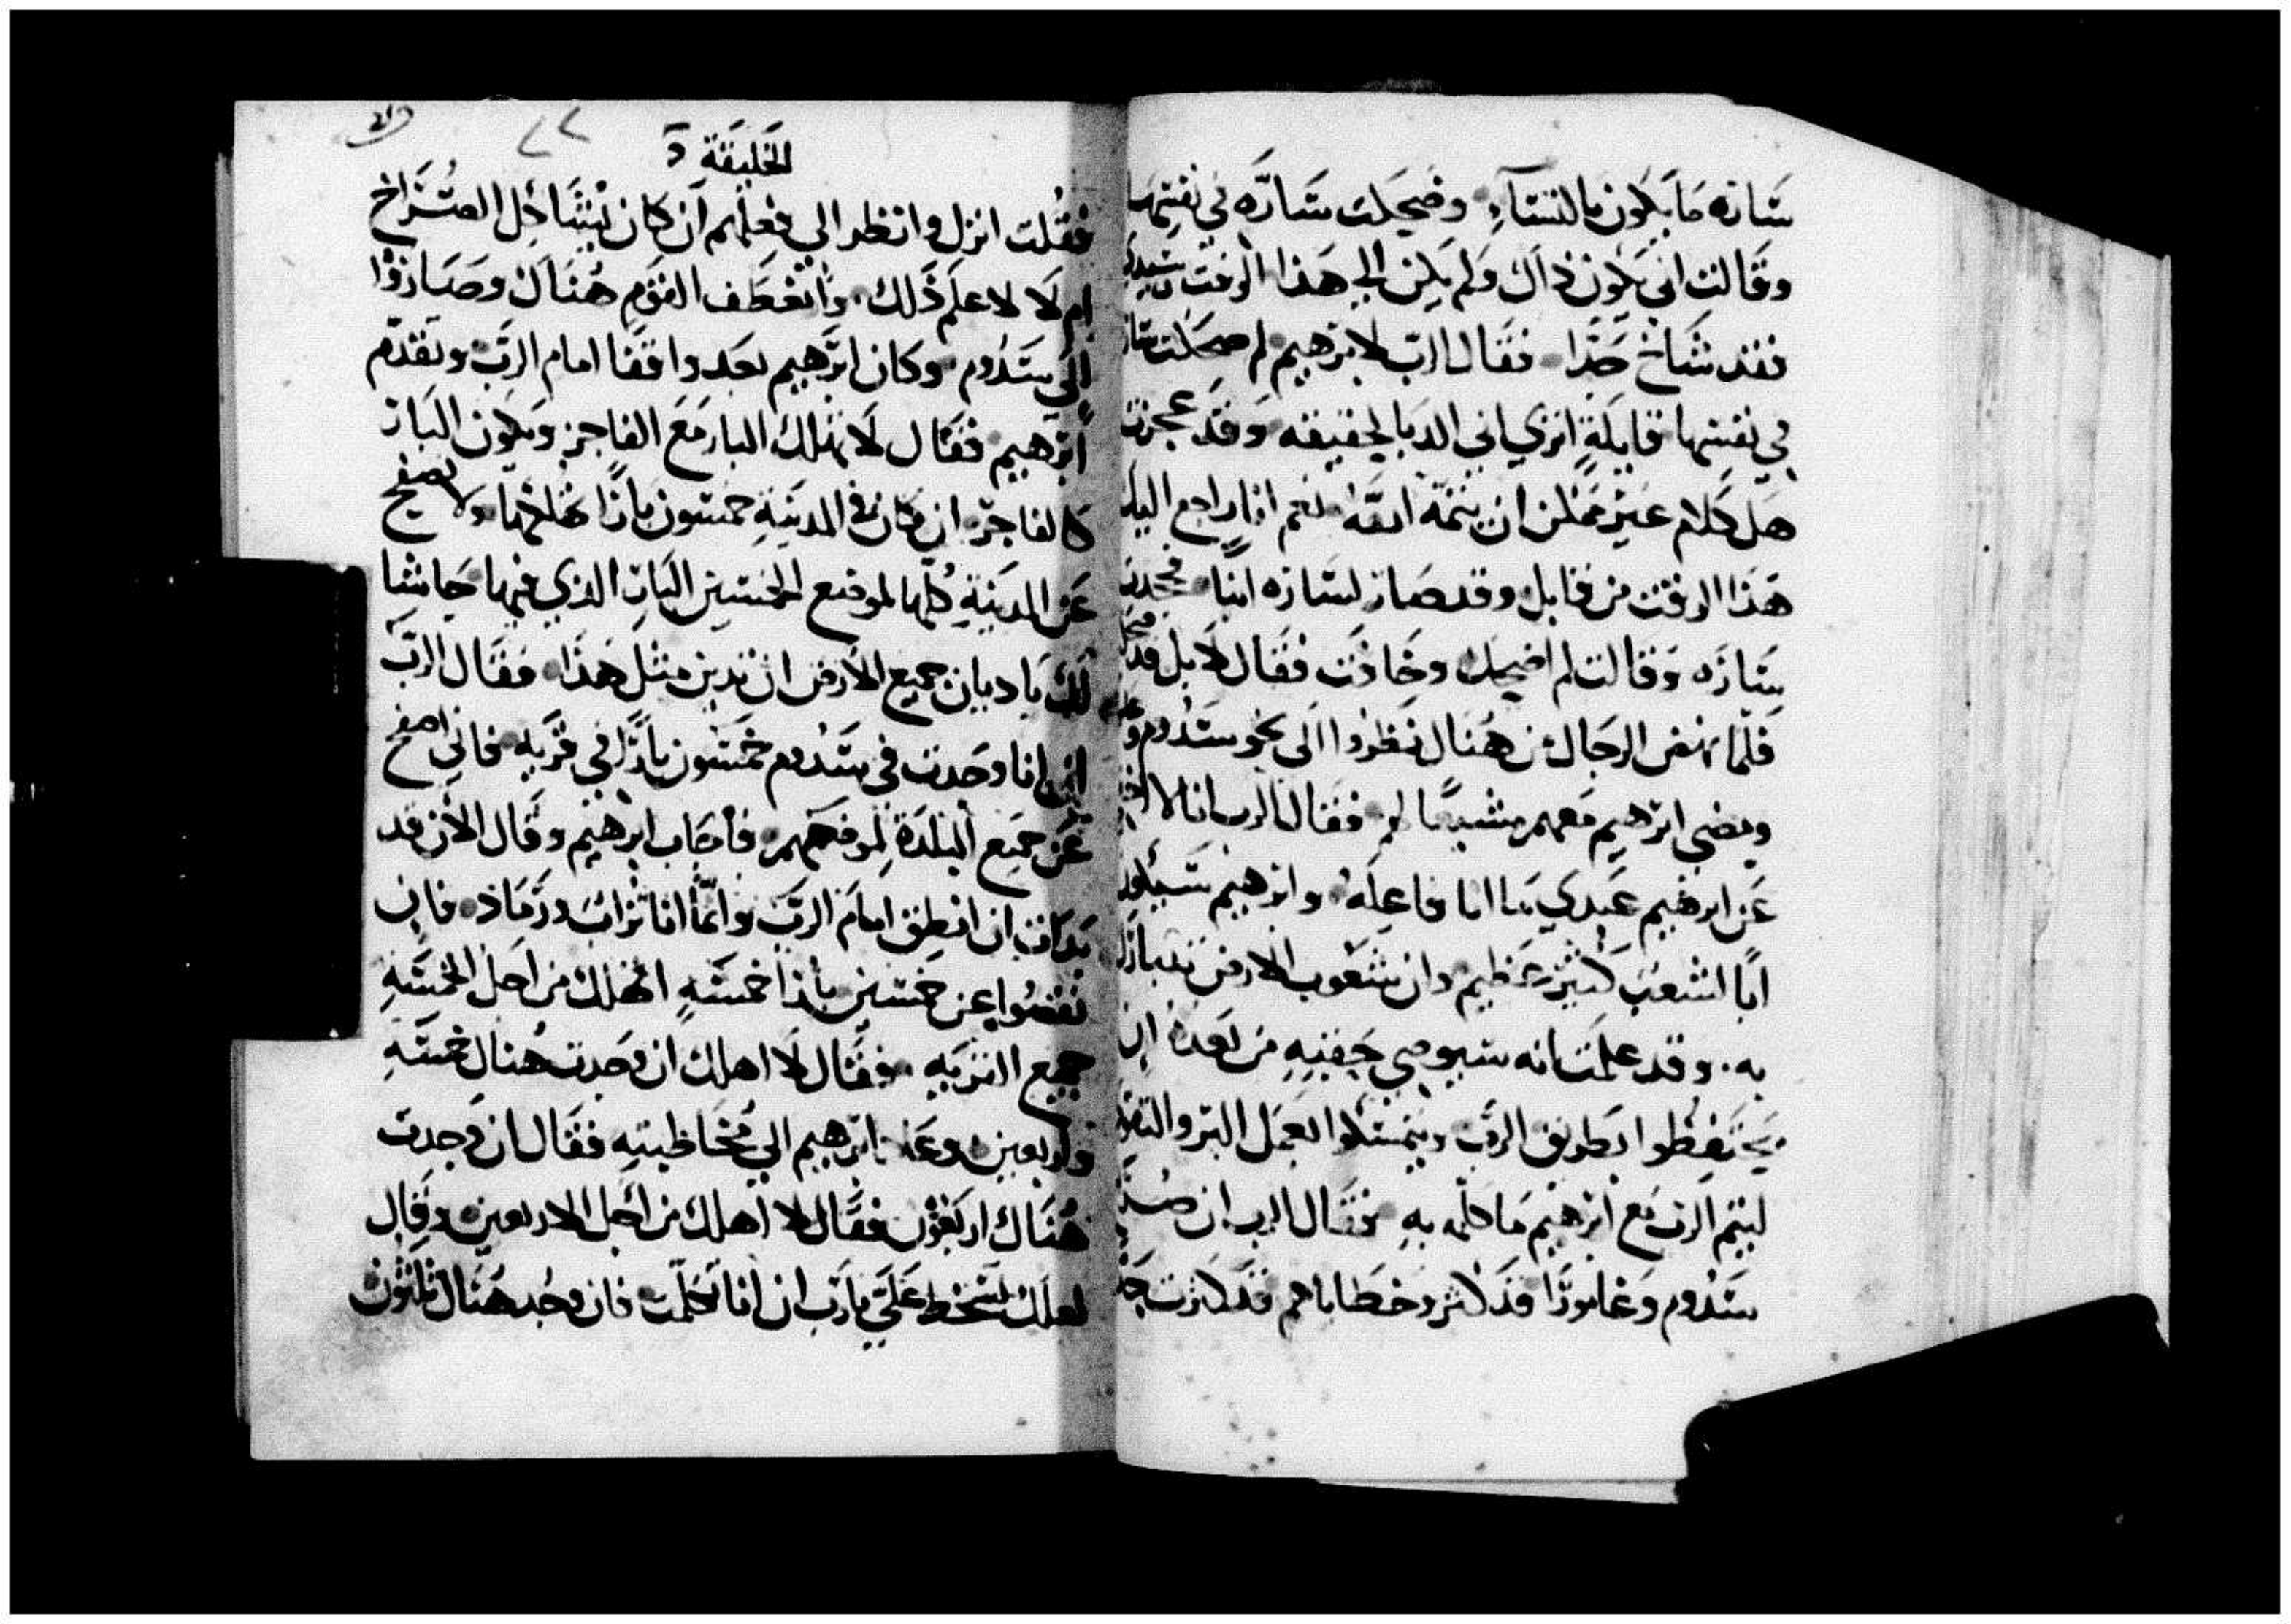 سَارَه مَا يَكون بالنساء وضحكت سَارَّه في نفسِهَا
وقَالت اني يَكون ذاك وَلم يَكن الي هَذا الوقت وسيدي
فقد شاخ جدًا فقَال الرب لابرهيم لم ضحكت سار
في نفسها قايلةٍ اتري اني الد بالحقيقه وَقد عجزت
هَل كلام غير ممكن ان يتمَهّ الله نعم انا راجع اليك
هَذا الوقت من قابل وقد صَار لسَاره ابنًا فجحدت
سَارَه وَقالت لم اضحك وخَافت فقَال لا بل قد
فلمّا نهض الرجَال من هُناك نَظروا الَى نحو سَدُوم
ومضى ابرهيم مَعهم مشيعًا لهم فقال الرب انا لا اخفي
عَن ابرهيم عَبدي مَا انا فاعِلَه وابرهيم سَيكون
ابًا لشعب كثير عَظيم وان شعوب الارض تتبارك
به وقد علمَت انه سيوصي جَفنيِه من بَعدهُ ان
يحتفِظوا بطريق الرب ويتمسّكوا بعَمل البر والتقا
ليتم الرب مَع ابرهيم مَا كلّمه به فقَال الرب ان
سَدُوم وَغامورَّا قد كثر وخطَاياهم قد كثرت جدًا
الخليقة
فقُلت انزل وانظر الي فعلهم ان كان يُشاكِل الصُّرَاخ
ام لا لاعلم ذَلك وانعطَف القوم هُنَاك وصَاروا
الى سَدُوم وكان ابرَهيم بعد واقفًا امام الرَّب وتقدم
ابرهيم فقَال لا تهلك البار مَع الفاجر ويكون البار
كالفاجر ان كان في المدينةِ خمسون بارًا تهلكها ولا تصفح
عَن المدينَةِ كلّها لموضع الخمسين البار الذي فيها حَاشا
لك يَا ديان جميع الارض ان تدين مثل هَذا فقَال الرّب
اني انا وجَدت في سَدُوم خمسون بارًا في قريه فاني اصفح
عَن جميع البلدَة لموضعهم فأجَاب ابرهيم وقَال الان قد
بَدَات ان انطِق امامَ الرب وانمَّا انا تراب ورَمَاد فان
نقصُوا عن خمسين بارًا خمسَهٍ اتهلك من اجل الخمسَهِ
جميع القريه فقَال لا اهلك ان وَجدت هُناك خمسَهٍ
واربعين وعَاد ابرهيم الي مُخاطبتِه فقَال ان وَجدت
هُنَاك اربَعون فقَال لا اهلك من اجل الاربعين وقَال
لعلك تسخط عَليَّ يا رَب ان انا تكلّمت فان وجُد هَنَاك ثلثون